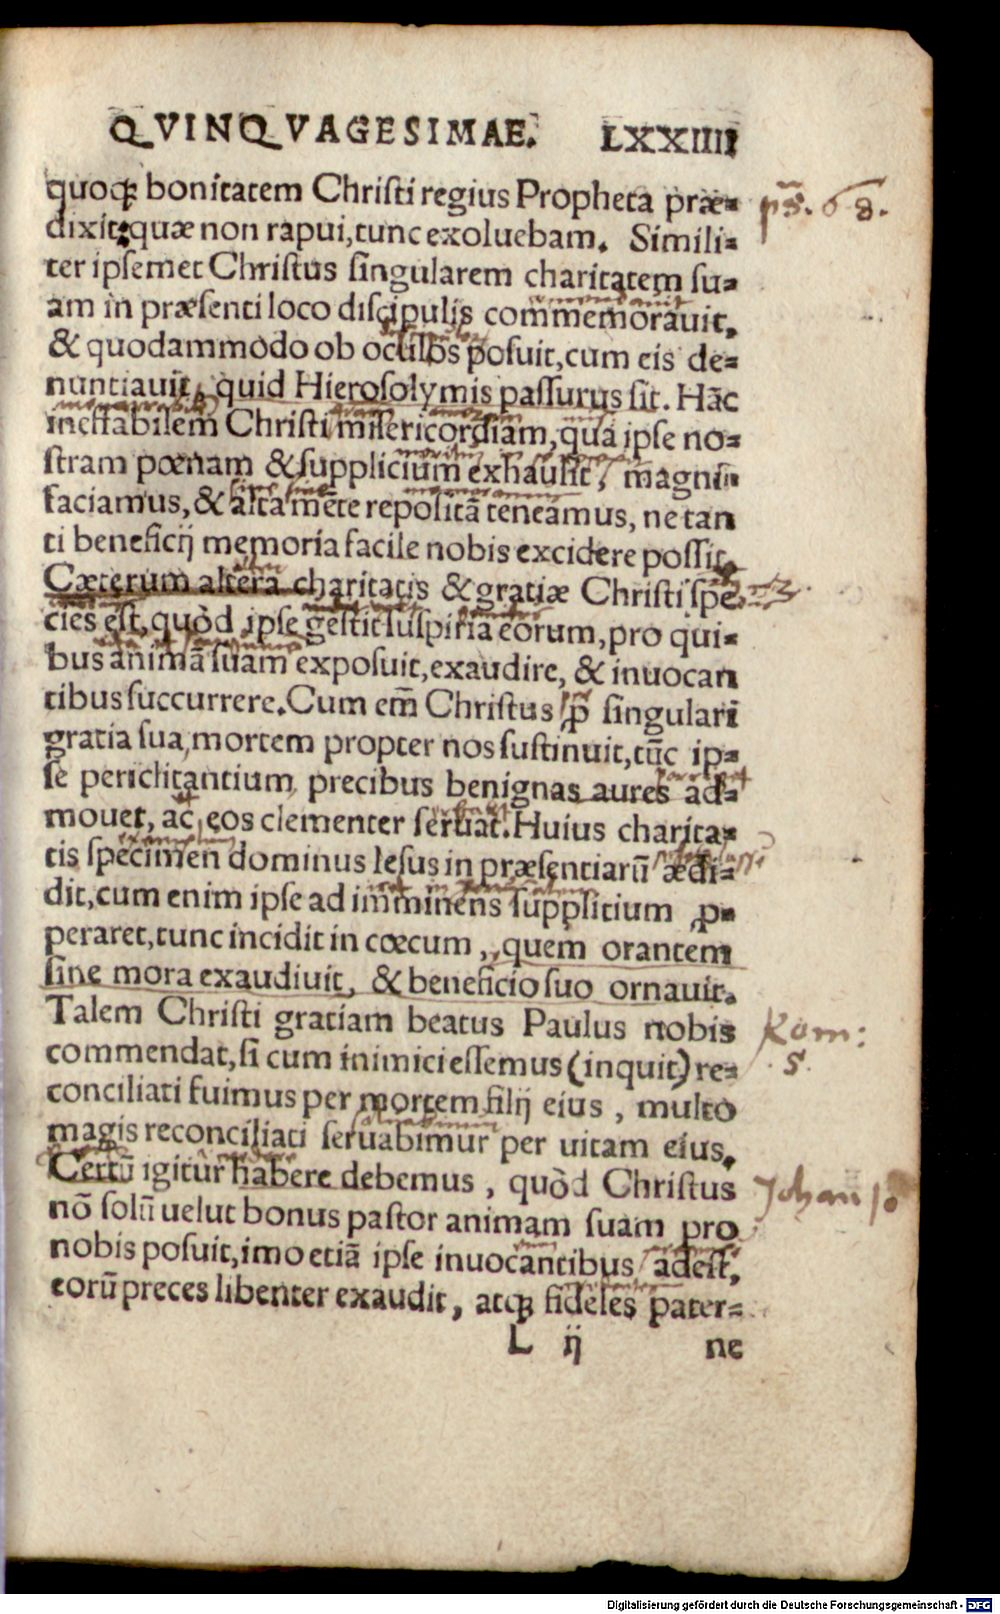 QVINQVAGESIMAE. LXXIIII
quoqꝫ bonitatem Christi regius Propheta præ=
dixit: quæ non rapui, tunc exoluebam. Simili=
ter ipsemet Christus singularem charitatem su=
am in præsenti loco discipulis commemorauit,
& quodammodo ob oculos posuit, cum eis de=
nuntiauit, quid Hierosolymis passurus sit. Hāc
ineffabilem Christi misericordiam, qua ipse no=
stram pœnam & supplicium exhausit, magni
faciamus, & alta mēte repositā teneamus, ne tan
ti beneficij memoria facile nobis excidere possit.
Cæterum altera charitatis & gratiæ Christi spe
cies est, quòd ipse gestit suspiria eorum, pro qui=
bus animā suam exposuit, exaudire, & inuocan
tibus succurrere. Cum em̄ Christus ꝓ singulari
gratia sua, mortem propter nos sustinuit, tūc ip=
se periclitantium precibus benignas aures ad=
mouet, ac eos clementer seruat. Huius charita=
tis specimen dominus Iesus in præsentiarū ædi=
dit, cum enim ipse ad imminens supplitium ꝓ=
peraret, tunc incidit in cœcum, quem orantem
sine mora exaudiuit, & beneficio suo ornauit.
Talem Christi gratiam beatus Paulus nobis
commendat, si cum inimici essemus (inquit) re=
conciliati fuimus per mortem filij eius, multo
magis reconciliati seruabimur per uitam eius.
Certū igitur habere debemus, quòd Christus
nō solū uelut bonus pastor animam suam pro
nobis posuit, imo etiā ipse inuocantibus adest,
eorū preces libenter exaudit, atqꝫ fideles pater=
L ij ne
ps. 68.
Rom:
5.
Johan 10
Digitalisierung gefördert durch die Deutsche Forschungsgemeinschaft - DFG